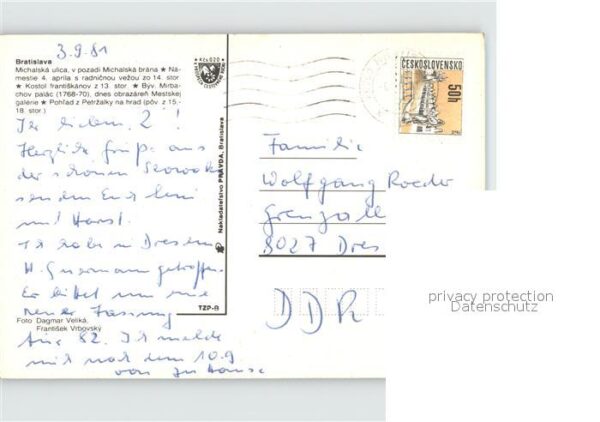 3.9.81
Bratislava
Michalská ulica, v pozadí Michalská brána ★ Ná-
mestie 4. apríla s radničnou vežou zo 14. stor
★ Kostol františkánov z 13 stor ★ Býv. Mirba-
chov palác (1768-70), dnes obrazáreň Mestskej
galérie ★ Pohľad z Petržalky na hrad (pôv z 15.-
18. stor)
Kčs 0,20
2!
Herzliche Grüße aus
der schönen
senden Euch
und Horst.
Ich habe in Dresden
H. getroffen
Er bittet um
neuer Fassung
82. Ich melde
mich nach dem 10.9
von zu Hause
Foto Dagmar Veliká,
František Vrbovský
Nakladateľstvo PRAVDA, Bratislava
TZP-R
ČESKOSLOVENSKO
50h
Familie
Wolfgang Roeder
8027 Dres
DDR
privacy protection
Datenschutz